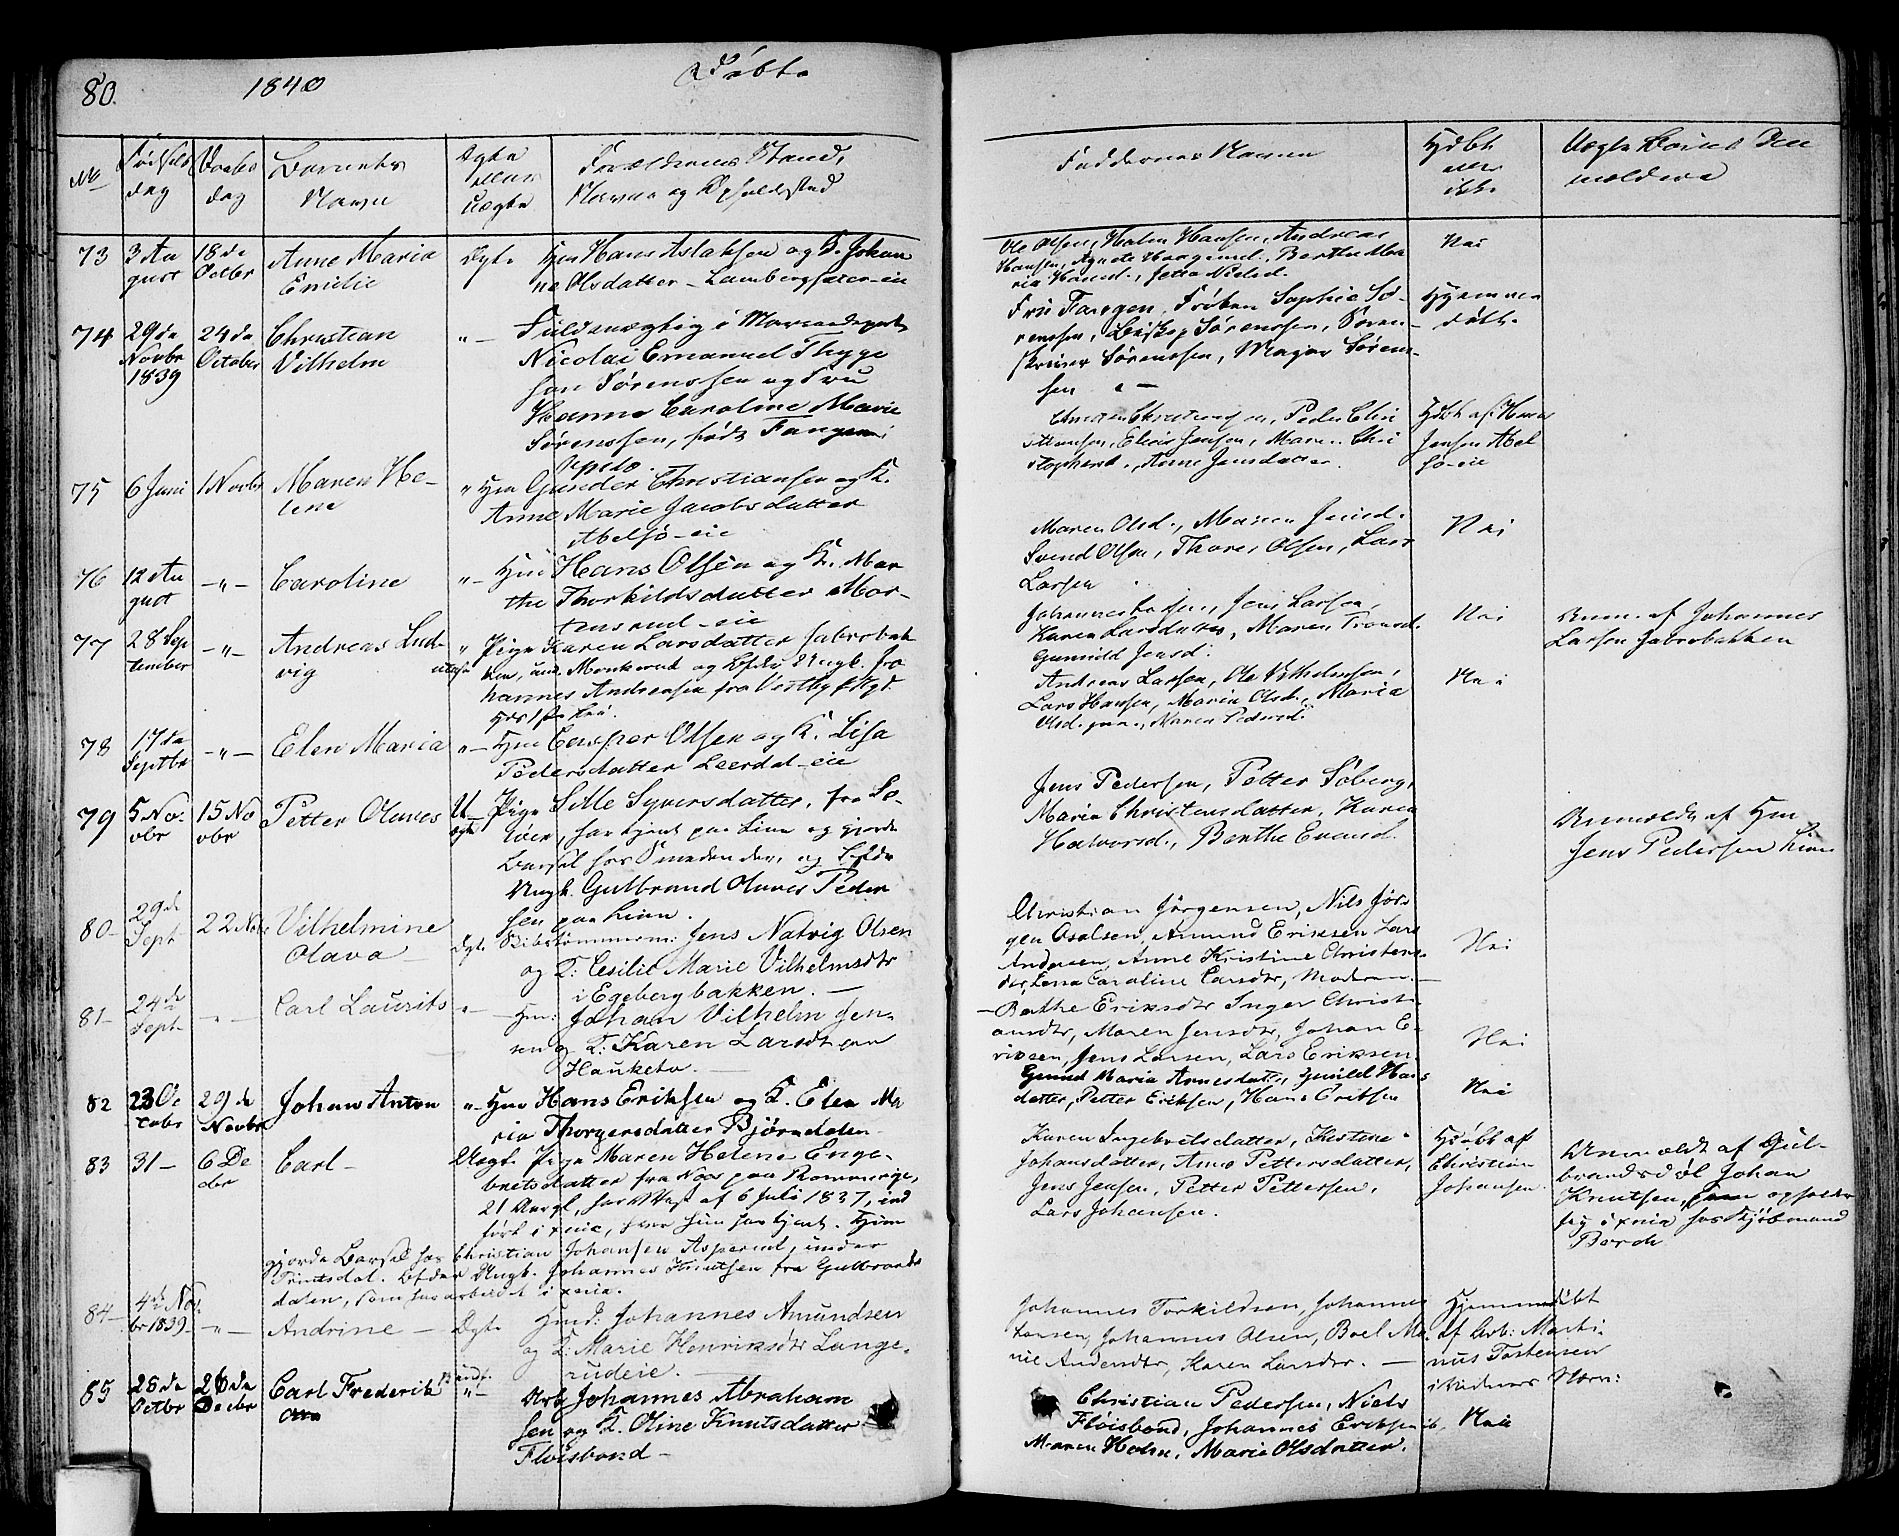 80. 1840 Døbte
No Fødsels dag Daabs dag Barnets Navn Ægte eller Uægte Forældrenes Stand, Navne og Opholdssted Faddernes Navne Hjdbt eller ikke Uægte Børns Anmeldere
73 3 Au gust 18de Octbr Anne Maria Emilie Ægte Hmd Hans Aslaksen og K. Johan
ne Olsdatter Lambergsæter-eie
Ole Olsen, Halm Hansen, Andreas
Hansen, Agnete Haagensd., Berthe Ma
ria Hansd., Nielsd. Nei
74 29de Novbr 1839 24de October Christian Vilhelm "— Fuldmægtig i
Nicolai Emanuel Thyge
sen Sørenssen og Fru
Hanna Caroline Marie
Sørenssen, født Fangen
Fru Fangen, Frøken Sophie Sø-
renssen, Biskop Sørenssen, Soren-
skriver Sørenssen, Major Sørens-
sen Hjemme døbt.
75 6 Juni 1 Novbr Maren He-
lene " Hmd Gunder Christiansen og K.
Anne Marie Jacobsdatter
Abelsø-eie
Peder Chri
stiansen, Jensen, Maren Chri
stophersd., Anne Jensdatter Hdbt af Hans
Jensen Abel
sø-eie
76 12 Au gust —"— Caroline "— Hmd Hans Olsen og K. Mar
the Thorkildsdatter Mor-
tensrud-eie
Maren Olsd., Maren Jensd.
Svend Olsen, Thorer Olsen, Lars
Larsen Nei
77 28 Sep tember —"— Andreas Lud-
vig " Pige Karen Larsdatter
og Ungk. Jo
hannes Andersen fra Vestby
Johannes Larsen, Jens Larsen,
Karen Larsdatter, Maren
Gunnild Jensd. Nei Anm. af Johannes
Larsen
78 17de Septbr —"— Elen Maria "— Hmd Casper Olsen og K. Lisa
Pedersdatter Leerdal-eie
Andreas Larsen, Ole Vilhelmsen,
Lars Hansen, Maria Olsd., Maria
Olsd., Maren Pedersd. Nei
79 5 No vbr 15 No vbr Petter Olaves U- ægte Pige Sille Syversdatter, fra So-
løer, har tjent paa Lian og gjorde
Barsel hos Smeden der, og
Ungk. Gulbrand Olaves Peder
sen paa Lian.
Jens Pedersen, Petter Søberg,
Maria Christensdatter, Karen
Halvorsd., Berthe Evensd. Anmeldt af Hmd
Jens Pedersen Lian
80— 29de Sept 22 Nov Vilhelmine
Olava — Ægte Skibstømmerm: Jens Natvig Olsen
og K: Cesilie Marie Vilhelmsdtr
i Egebergbakken. —
Christian Jørgensen, Nils Jør-
gen Osolsen, Amund Eriksen Lars
Andersen, Anne Kristine Christens
dtr, Lena Caroline Larsdtr, Moderen — Nei
81— 24de Sept- —"— Carl Laurits "— Hm: Johan Vilhelm Jen-
sen og K: Karen Larsdtr paa
Hauketo. —
— Berthe Eriksdtr Inger Christi
ansdtr, Maren Jensdtr, Johan E-
riksen, Jens Larsen, Lars Eriksen. Nei
82 23 Oc tobr 29de Novbr Johan Anton "— Hmd Hans Eriksen og K. Elen Ma
ria Thorgersdatter Bjørndalen
Gunild Maria Arnesdatter, Gunild Hans
datter, Petter Eriksen, Hans Eriksen Nei
83 31— 6 De cbr Carl— Uægte Pige Maren Helene Enge-
bretsdatter fra Næs paa Rommerige,
21 Aar gl., har Pas af 6 Juli 1837, ind
ført i Xnia, hvor hun har tjent. Hun
gjorde Barsel hos Christian Johansen Asperud, under
Ungk. Johannes Knutsen fra Gulbrands
dalen, som har arbeidet i Xnia.
Karen Ingebretsdatter, Kistine
Johansdatter, Anne Pettersdatter,
Jens Jensen, Petter Pettersen,
Lars Johansen. Hjdbt af
Christian
Johansen. Anmeldt af Gul-
brandsdøl Johan
Knutsen, som opholder
sig i Xnia hos Kjøbmand
Borch
84— 4de Nov br 1839— —"— Andrine — Ægte Hmd: Johannes Amundsen
og K: Marie Henriksdtr Lange-
rudeie. —
Johannes Torkildsen, Johannes
Hansen, Johannes Olsen, Boel Ma-
rie Andersdtr, Karen Larsdtr. — Hjemmedøbt
af Arb: Marti-
nus Tostensen
85 25de Octbr 26de Decbr Carl Frederik "— Arb. Johannes Abraham
sen og K. Oline Knutsdatter
Fløisbond—
Christian Pedersen, Niels
Fløisbond, Johannes Eriksen ib.
Maren Holm, Marie Olsdatter. Nei